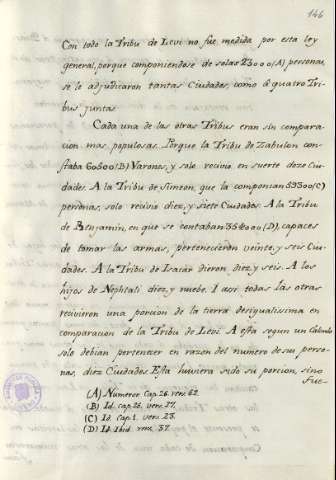 146
Con todo la Tribu de Levi no fue medida por esta ley
general, porque componiendose de solas 23000 (A) personas,
se le adjudicaron tantas Ciudades, como à quatro Tri-
bus juntas.
Cada una de las otras Tribus eran sin compara-
cion mas populosas. Porque la Tribu de Zabulon con-
staba 60500 (B) Varones, y solo recivio en suerte doze Ciu-
dades. A la Tribu de Simeon, que la componian 59300 (C)
personas, solo recivio diez, y siete Ciudades. A la Tribu
de Benjamin, en que se contaban 35400 (D), capaces
de tomar las armas, pertenecieron veinte, y seis Ciu-
dades. A la Tribu de Isacàr dieron diez, y seis. A los
hijos de Nephtali diez, y nuebe. I asi todas las otras
recivieron una porcion de la tierra desigualissima en
comparacion de la Tribu de Levi. A esta segun un Calculo
solo debian pertenecer en razon del numero de sus perso-
nas, diez Ciudades. Esta huviera sido su porcion, sino
fue-
(A) Numeror. Cap. 26. vers. 62.
(B) Id. cap. 26. vers. 27.
(C) Id. Cap. 1. vers. 23.
(D) Id. Ibid. vers. 37.